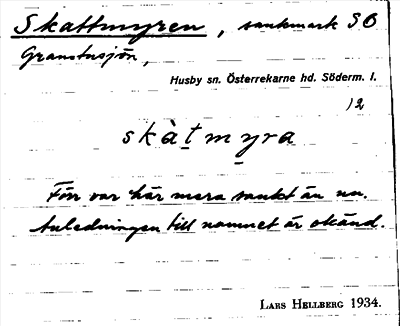 Skattmyren, sankmark SO
Granstasjön,
Husby sn. Österrekarne hd. Söderm. l.
)2
skàtmyra
Förr var här mera sankt än nu.
Anledningen till namnet är okänd.
LARS HELLBERG 1934.